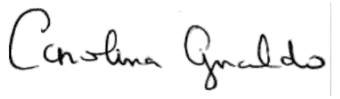 Carolina Gnaldo